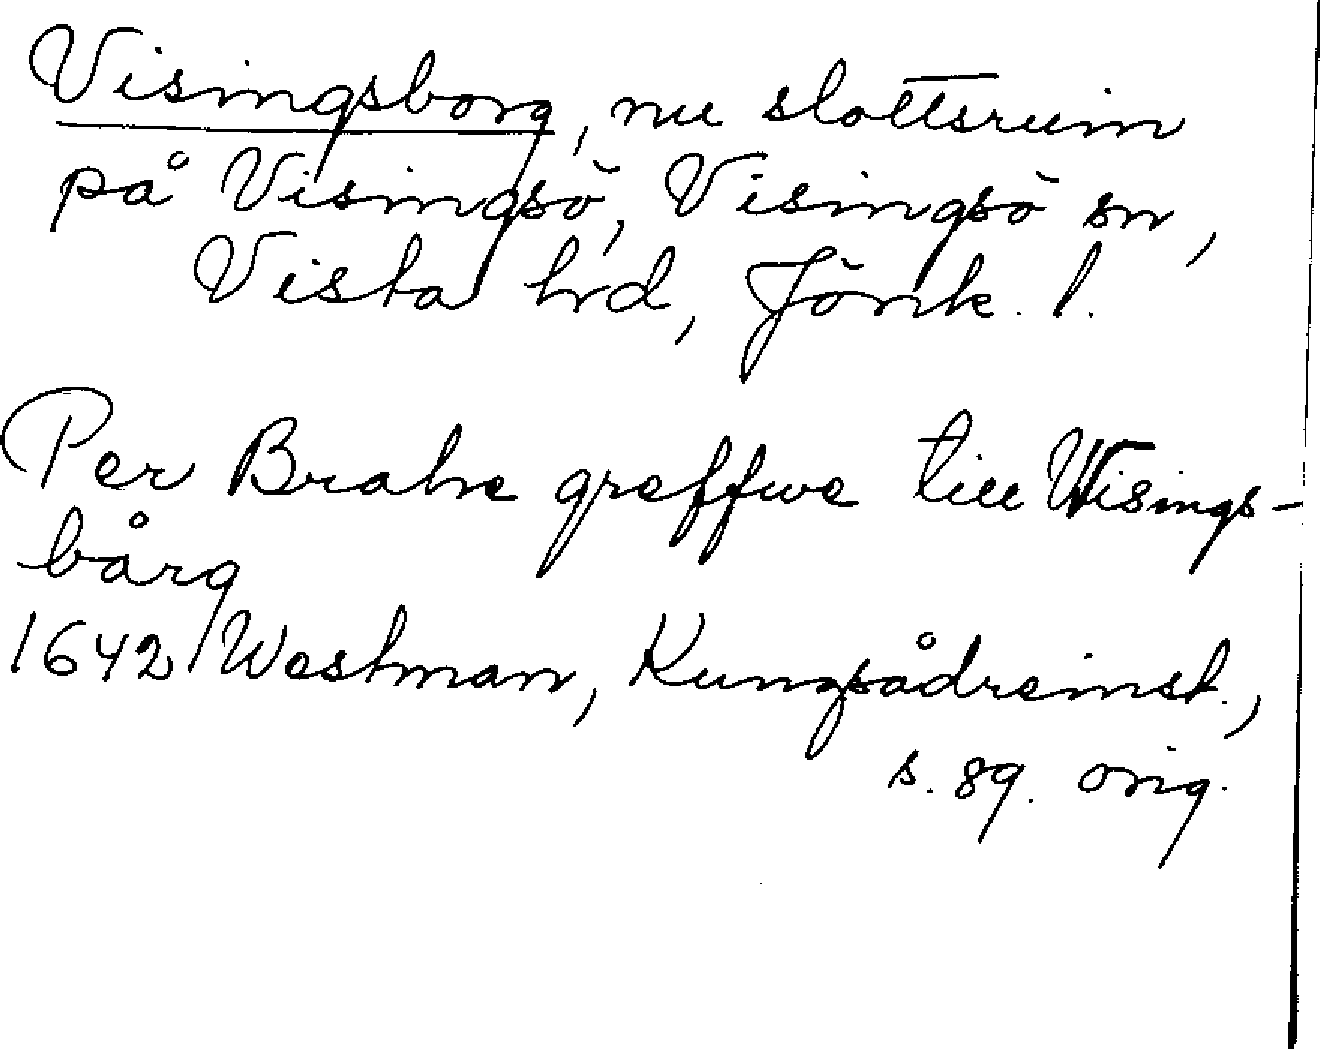 Visingsborg, nu slottsruin
på Visingsö, Visingsö sn,
Vista hrd, Jönk. l.
Per Brahe greffwe till Wisings-
bårg
1642 Westman, Kungsådreinst.,
s. 89. orig.